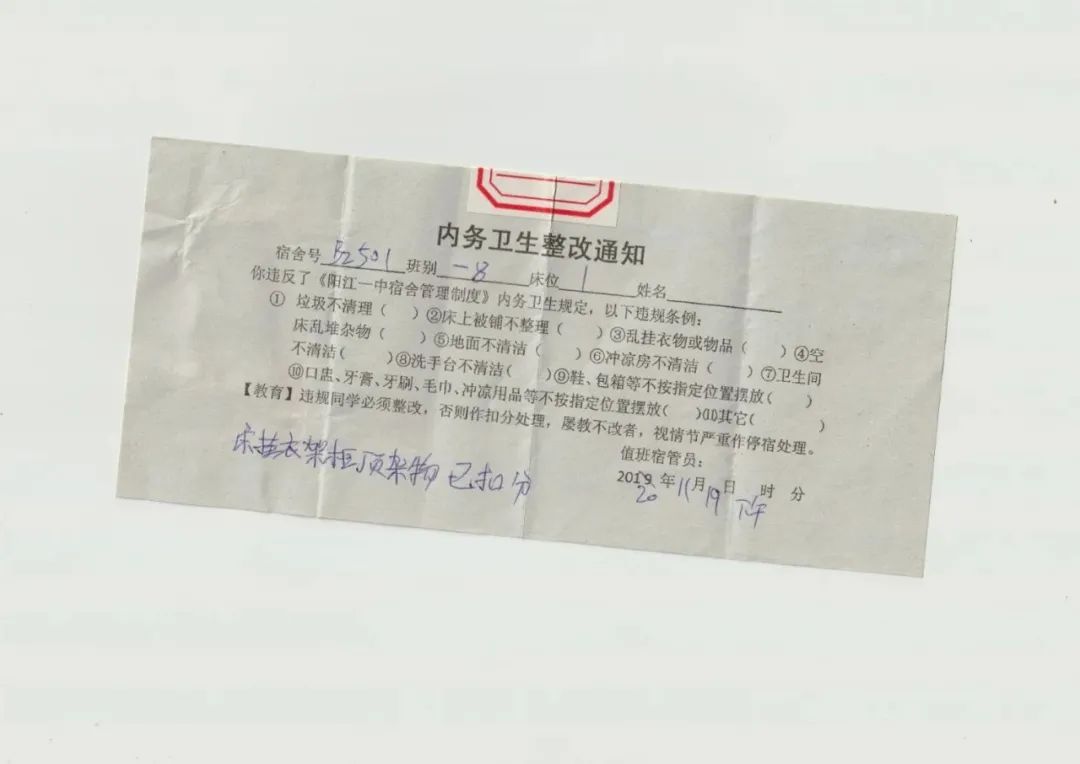 内务卫生整改通知
宿舍号 B2501 班别 一8 床位 1 姓名
你违反了《阳江一中宿舍管理制度》内务卫生规定，以下违规条例：
① 垃圾不清理（ ）②床上被铺不整理（ ）③乱挂衣物或物品（ ）④空
床乱堆杂物（ ）⑤地面不清洁（ ）⑥冲凉房不清洁（ ）⑦卫生间
不清洁（ ）⑧洗手台不清洁（ ）⑨鞋、包箱等不按指定位置摆放（ ）
⑩口盅、牙膏、牙刷、毛巾、冲凉用品等不按指定位置摆放（ ）⑪其它（ ）
【教育】违规同学必须整改，否则作扣分处理，屡教不改者，视情节严重作停宿处理。
值班宿管员：
2019 年 11 月 19 日 时 分
20 下午
床挂衣架柜顶杂物 已扣分